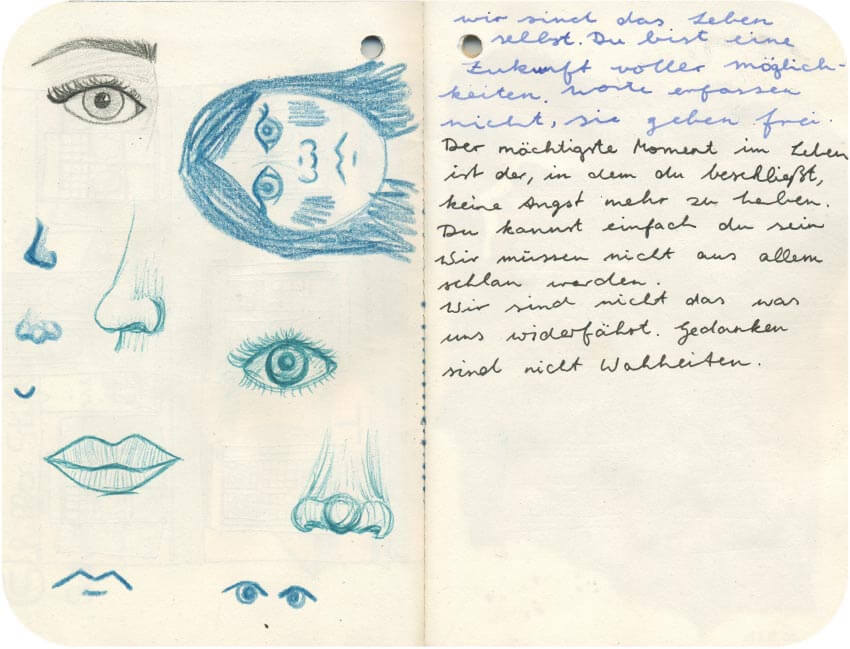 wir sind das Leben
selbst. Du bist eine
Zukunft voller Möglich-
keiten. Worte erfassen
nicht, sie geben frei.
Der mächtigste Moment im Leben
ist der, in dem du beschließt,
keine Angst mehr zu haben.
Du kannst einfach du sein
Wir müssen nicht aus allem
schlau werden.
Wir sind nicht das was
uns widerfährt. Gedanken
sind nicht Wahheiten.